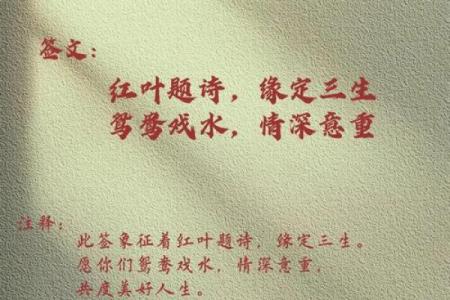 签文：
红叶题诗，缘定三生
鸳鸯戏水，情深意重
注释：
此签象征着红叶题诗，缘定三生。
愿你们鸳鸯戏水，情深意重，
共度美好人生。